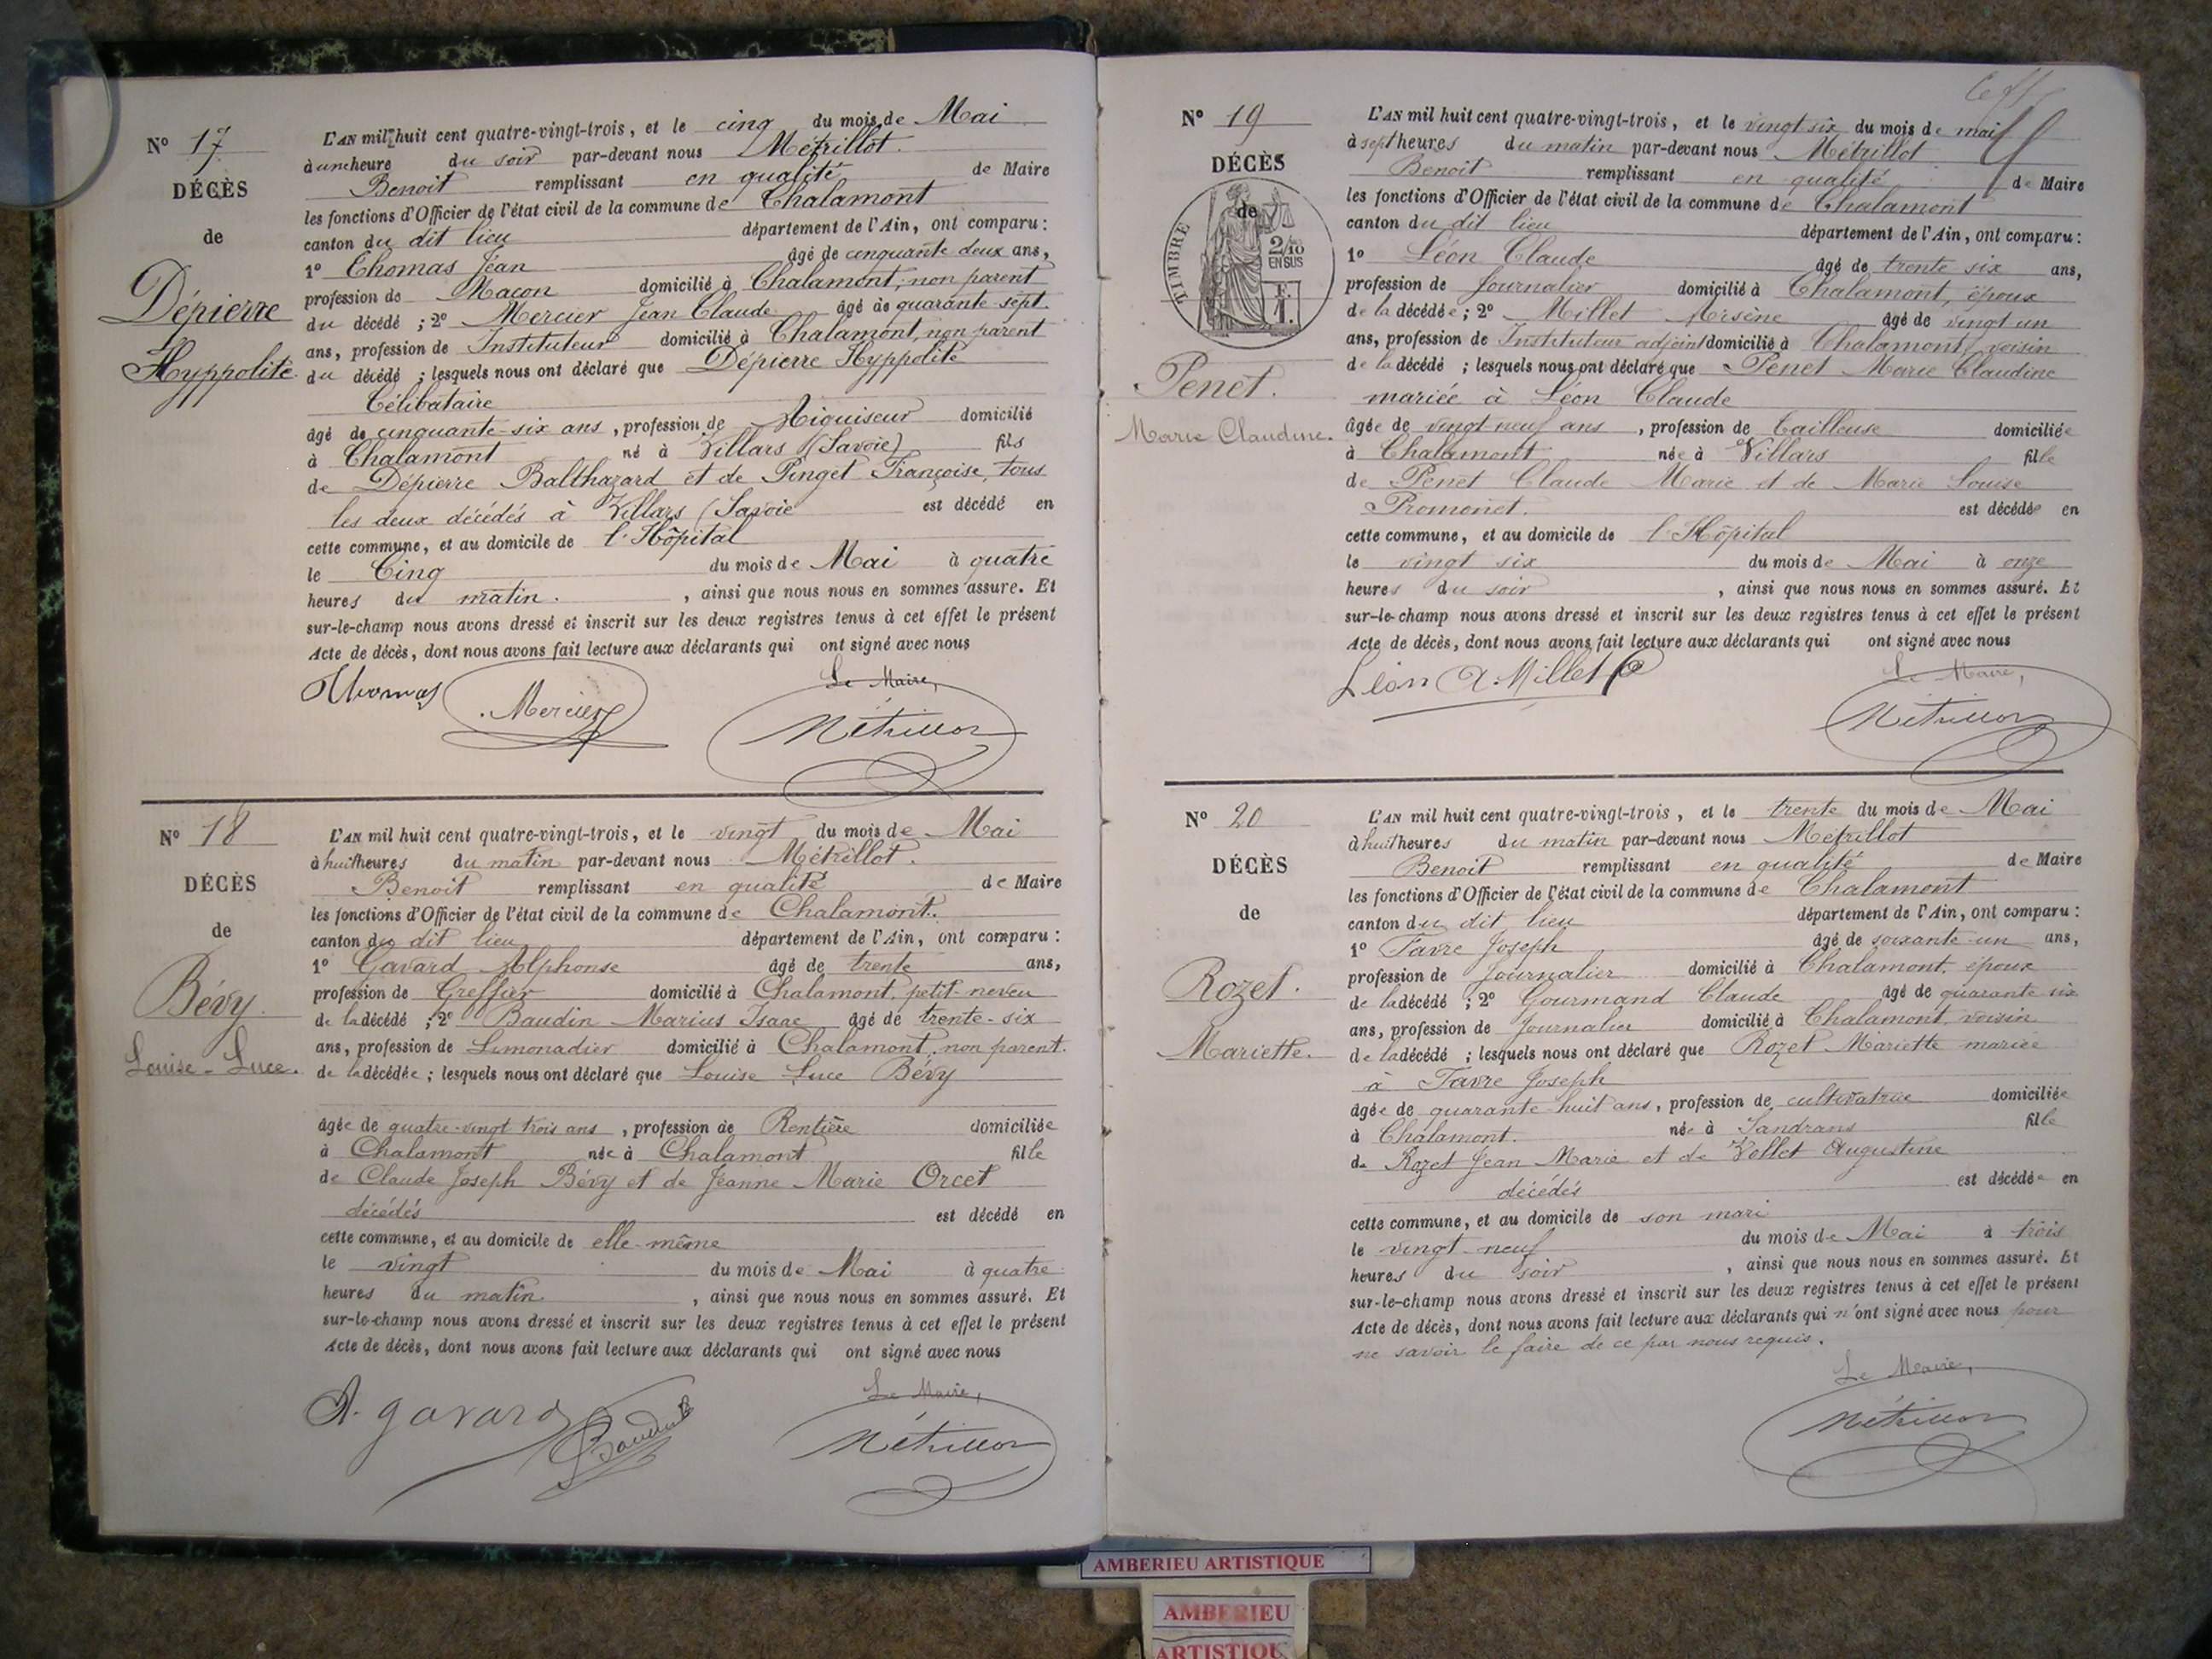 N° 17
DÉCÈS
de
Dépierre
Hyppolite
L'AN mil huit cent quatre-vingt-trois, et le cinq du mois de Mai
à une heure du soir par-devant nous Métrillot
Benoit remplissant en qualité de Maire
les fonctions d'Officier de l'état civil de la commune de Chalamont
canton du dit lieu département de l'Ain, ont comparu :
1° Thomas Jean âgé de cinquante deux ans,
profession de Macon domicilié à Chalamont, non parent
du décédé ; 2° Mercier Jean Claude âgé de quarante sept
ans, profession de Instituteur domicilié à Chalamont, non parent
du décédé ; lesquels nous ont déclaré que Dépierre Hyppolite
Célibataire
âgé de cinquante-six ans, profession de Aiguiseur domicilié
à Chalamont né à Villars (Savoie) fils
de Dépierre Balthazard et de Pinget Françoise, tous
les deux décédés à Villars (Savoie est décédé en
cette commune, et au domicile de l'Hôpital
le Cinq du mois de Mai à quatre
heures du matin. , ainsi que nous nous en sommes assuré. Et
sur-le-champ nous avons dressé et inscrit sur les deux registres tenus à cet effet le présent
Acte de décès, dont nous avons fait lecture aux déclarants qui ont signé avec nous
Le Maire,
Thomas Mercier Métrillot
N° 18
DÉCÈS
de
Bévy
Louise-Luce.
L'AN mil huit cent quatre-vingt-trois, et le vingt du mois de Mai
à huit heures du matin par-devant nous Métrillot.
Benoit remplissant en qualité de Maire
les fonctions d'Officier de l'état civil de la commune de Chalamont.
canton du dit lieu département de l'Ain, ont comparu :
1° Gavard Alphonse âgé de trente ans,
profession de Greffier domicilié à Chalamont, petit-neveu
de la décédé ; 2° Baudin Marius Isaac âgé de trente-six
ans, profession de Limonadier domicilié à Chalamont, non parent.
de la décédée ; lesquels nous ont déclaré que Louise Luce Bévy
âgée de quatre-vingt trois ans, profession de Rentière domiciliée
à Chalamont née à Chalamont fille
de Claude Joseph Bévy et de Jeanne Marie Orcet
décédés est décédé en
cette commune, et au domicile de elle-même
le vingt du mois de Mai à quatre
heures du matin , ainsi que nous nous en sommes assuré. Et
sur-le-champ nous avons dressé et inscrit sur les deux registres tenus à cet effet le présent
Acte de décès, dont nous avons fait lecture aux déclarants qui ont signé avec nous
Le Maire,
A. gavard Baudin Métrillot
N° 19
DÉCÈS
de
TIMBRE
2/10
EN SUS
Penet.
Marie Claudine.
L'AN mil huit cent quatre-vingt-trois, et le vingt six du mois de mai
à sept heures du matin par-devant nous Métrillot
Benoit remplissant en qualité de Maire
les fonctions d'Officier de l'état civil de la commune de Chalamont
canton du dit lieu département de l'Ain, ont comparu :
1° Léon Claude âgé de trente six ans,
profession de Journalier domicilié à Chalamont, époux
de la décédée ; 2° Millet Arsène âgé de vingt un
ans, profession de Instituteur adjoint domicilié à Chalamont, voisin
de la décédé ; lesquels nous ont déclaré que Penet Marie Claudine
mariée à Léon Claude
âgée de vingt-neuf ans, profession de Tailleuse domiciliée
à Chalamont née à Villars fille
de Penet Claude Marie et de Marie Louise
Promonet. est décédée en
cette commune, et au domicile de l'Hôpital
le vingt six du mois de Mai à onze
heures du soir , ainsi que nous nous en sommes assuré. Et
sur-le-champ nous avons dressé et inscrit sur les deux registres tenus à cet effet le présent
Acte de décès, dont nous avons fait lecture aux déclarants qui ont signé avec nous
Le Maire,
Léon A. Millet Métrillot
N° 20
DÉCÈS
de
Rozet.
Mariette.
L'AN mil huit cent quatre-vingt-trois, et le trente du mois de Mai
à huit heures du matin par-devant nous Métrillot
Benoit remplissant en qualité de Maire
les fonctions d'Officier de l'état civil de la commune de Chalamont
canton du dit lieu département de l'Ain, ont comparu :
1° Favre Joseph âgé de soixante-un ans,
profession de Journalier domicilié à Chalamont, époux
de la décédé ; 2° Gourmand Claude âgé de quarante six
ans, profession de Journalier domicilié à Chalamont, voisin
de la décédé ; lesquels nous ont déclaré que Rozet Mariette mariée
à Favre Joseph
âgée de quarante-huit ans, profession de cultivatrice domiciliée
à Chalamont. née à Sandrans fille
de Rozet Jean Marie et de Vollet Augustine
décédés est décédée en
cette commune, et au domicile de son mari
le vingt-neuf du mois de Mai à trois
heures du soir , ainsi que nous nous en sommes assuré. Et
sur-le-champ nous avons dressé et inscrit sur les deux registres tenus à cet effet le présent
Acte de décès, dont nous avons fait lecture aux déclarants qui n'ont signé avec nous pour
ne savoir le faire de ce par nous requis.
Le Maire,
Métrillot
AMBERIEU ARTISTIQUE
AMBERIEU
ARTISTIQUE